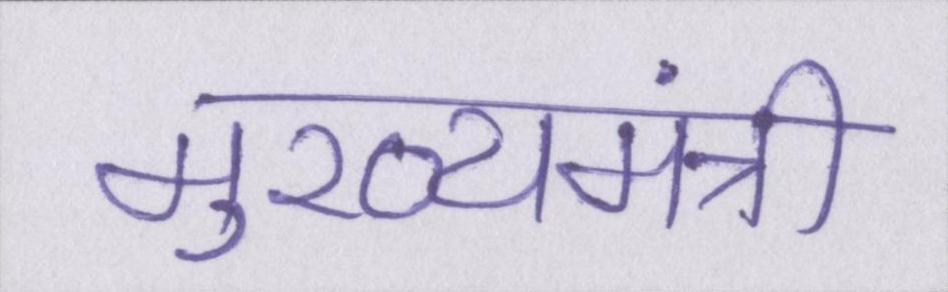 मुख्यमंत्री